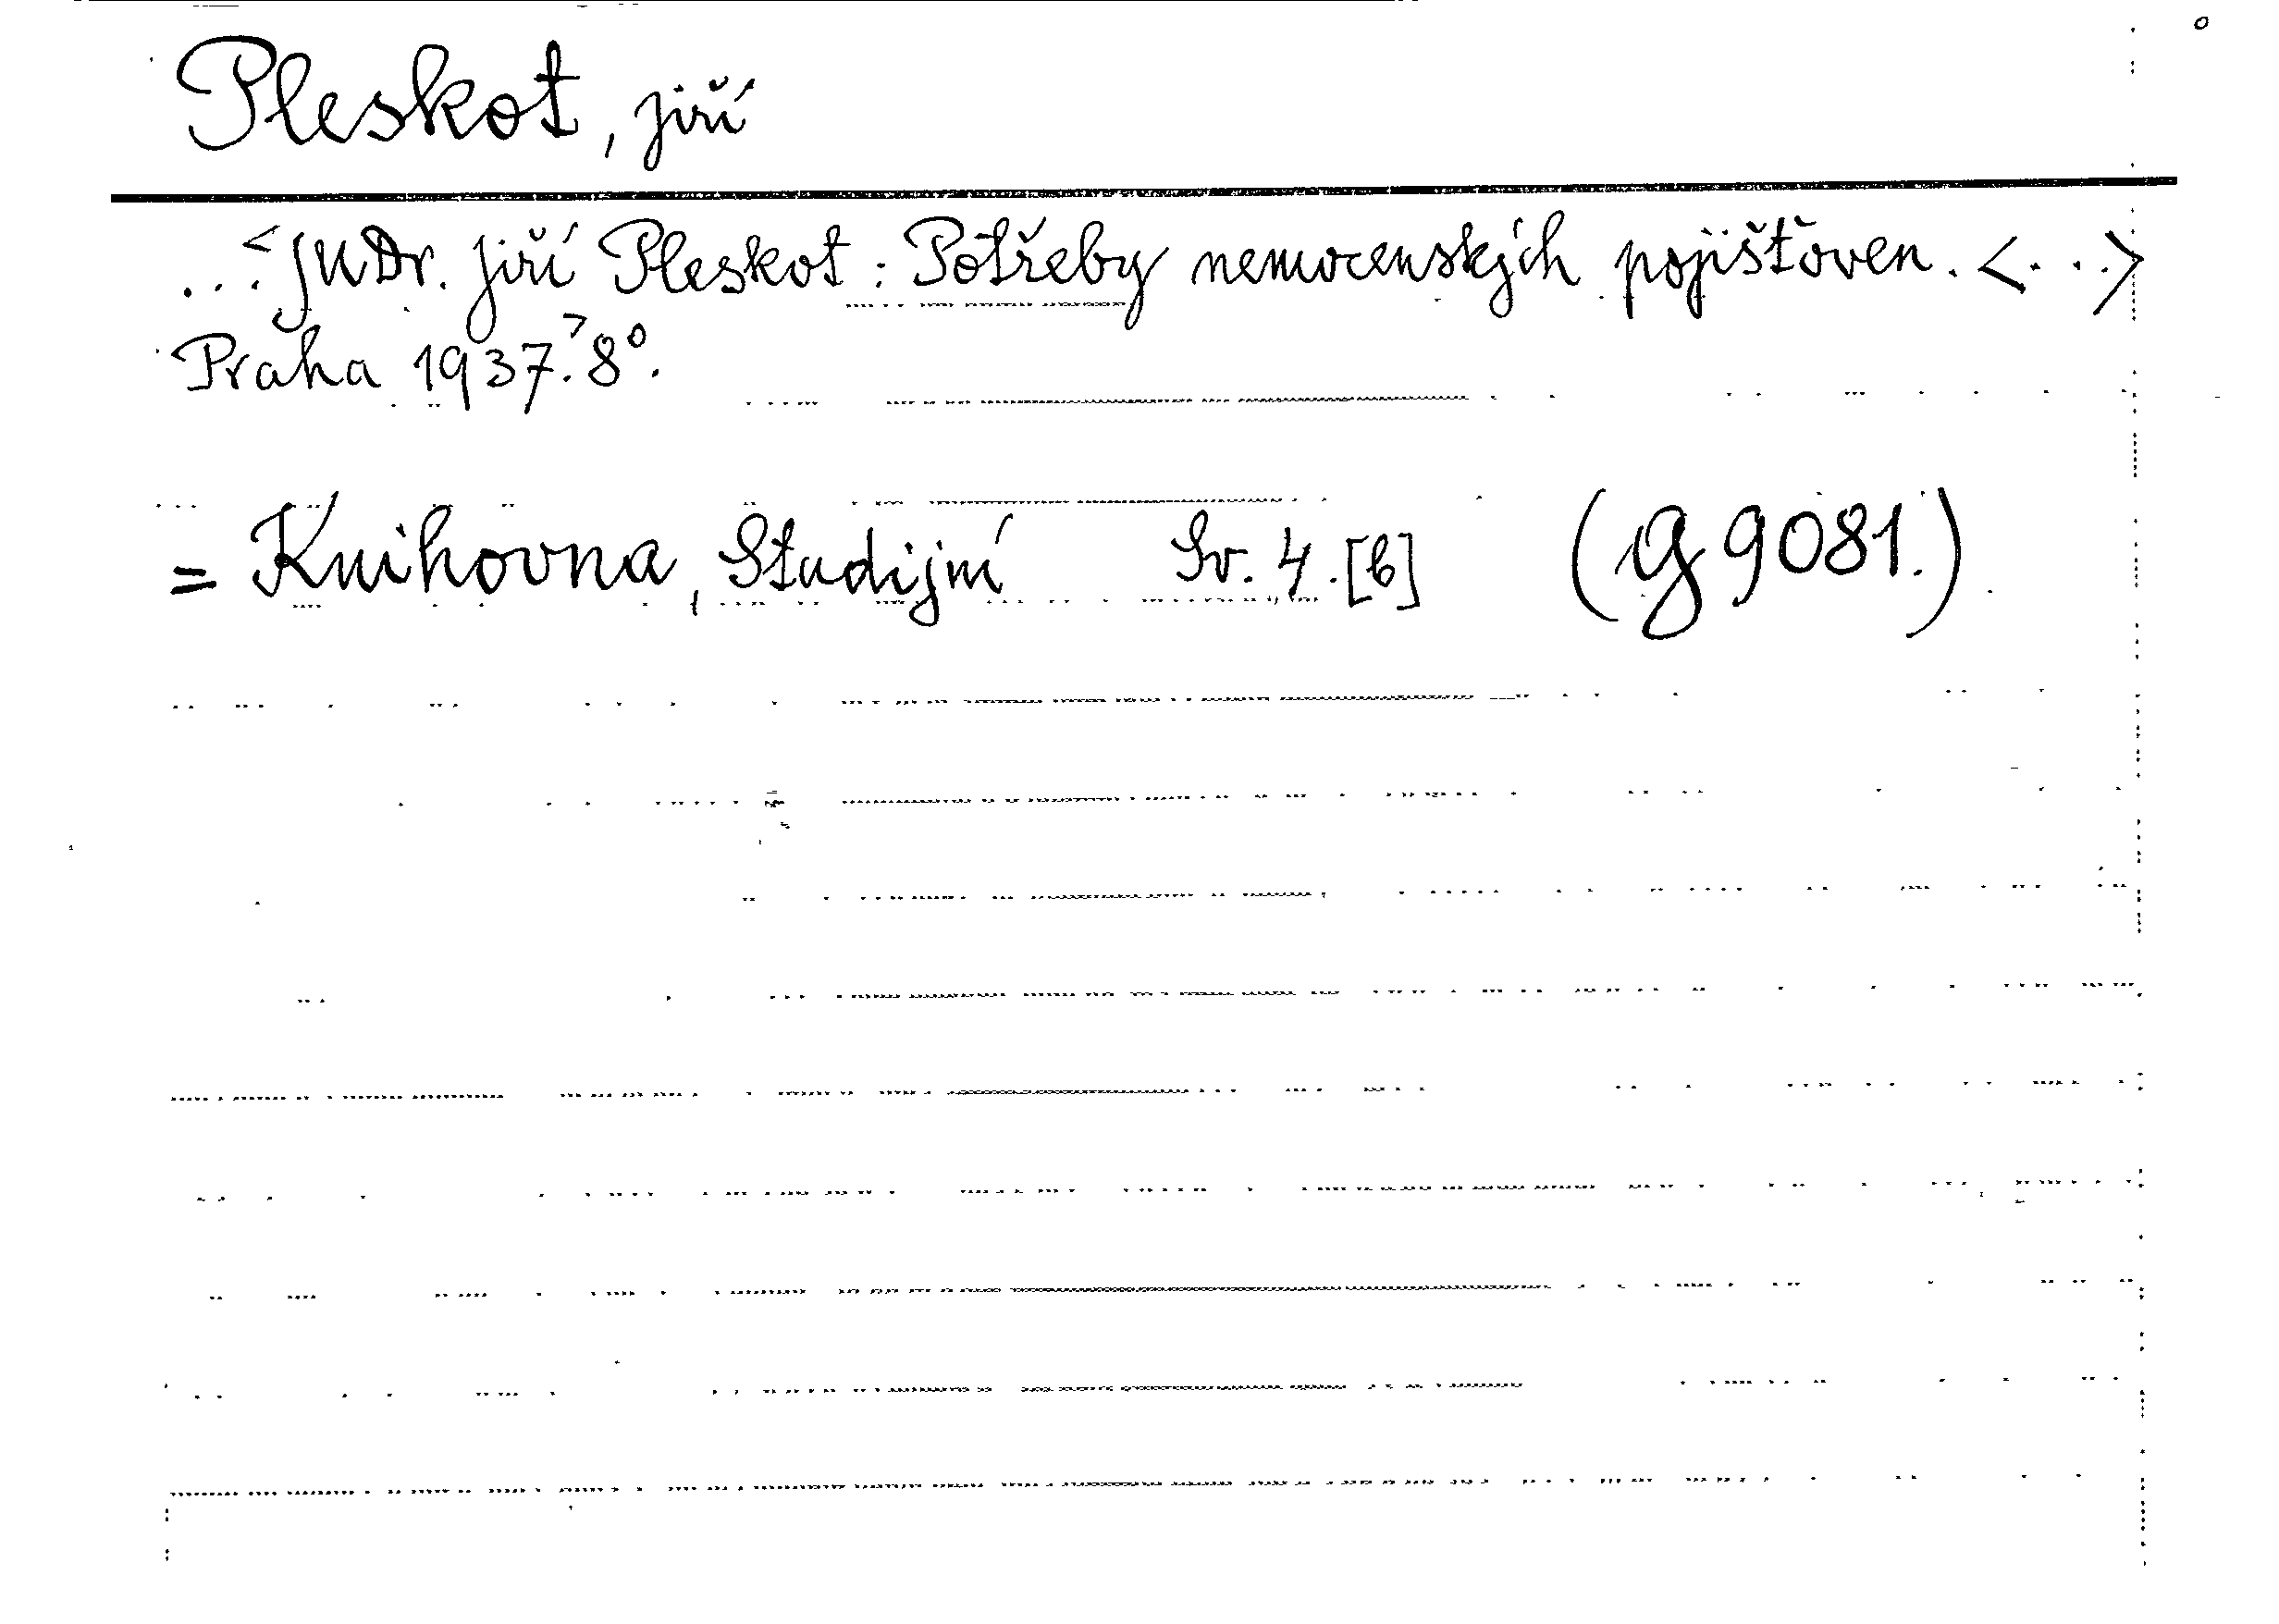 Pleskot, Jiří
...<JUDr. Jiří Pleskot: Potřeby nemocenských pojišťoven. <...>
Praha 1937.> 8°.
= Knihovna, Studijní Sv. 4.[b] (G 9081.)